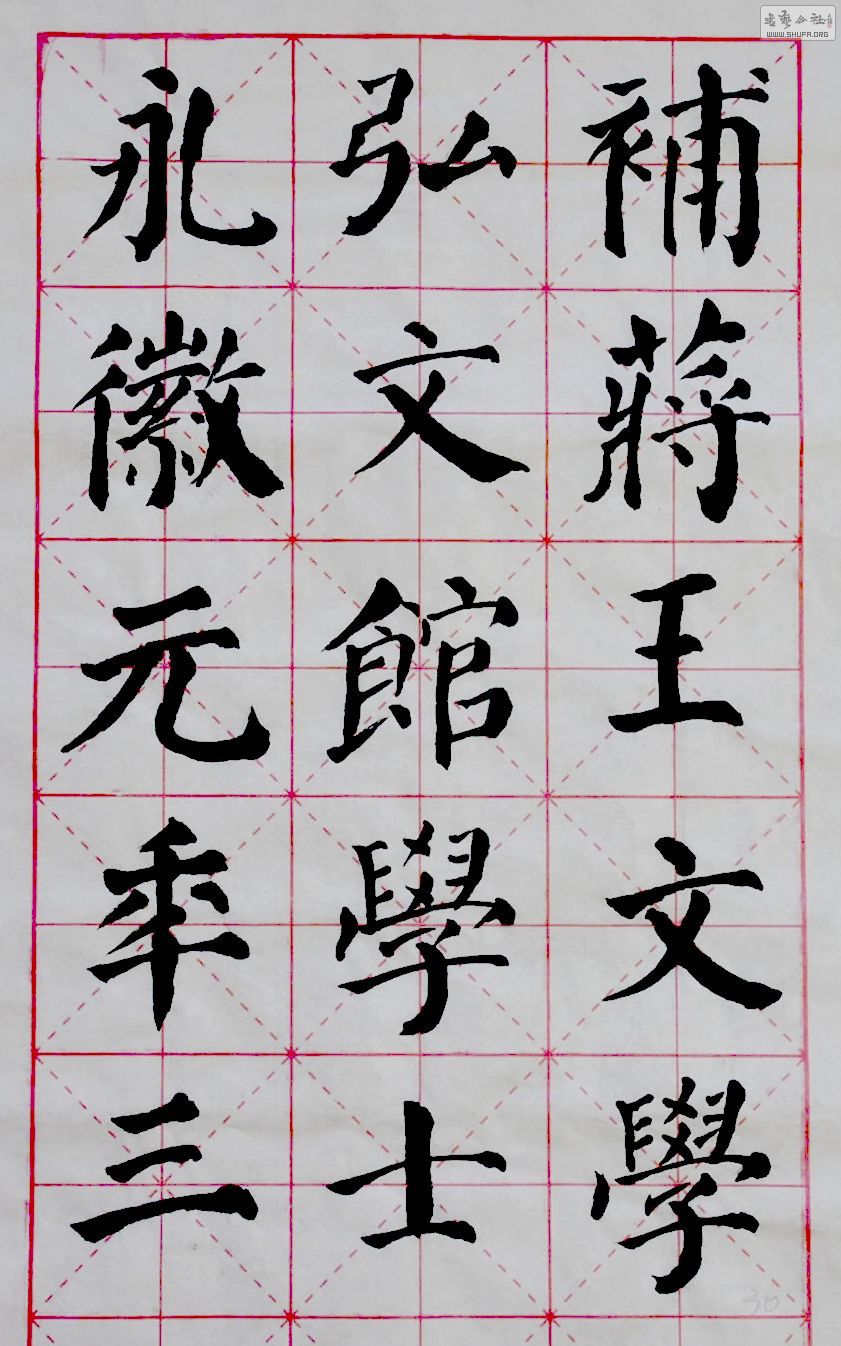 補蔣王文學
弘文館學士
永徽元年三
書藝公社
WWW.SHUFA.ORG
30